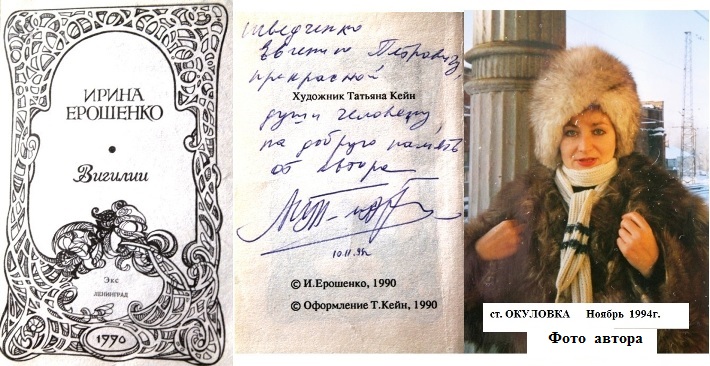 ИРИНА
ЕРОШЕНКО
Вигилии
Экс
ЛЕНИНГРАД
1990
Шведченко
Евгению Петровичу,
прекрасной
Художник Татьяна Кейн
души человеку,
на добрую память
от автора
© И.Ерошенко, 1990
© Оформление Т.Кейн, 1990
ст. ОКУЛОВКА Ноябрь 1994г.
Фото автора